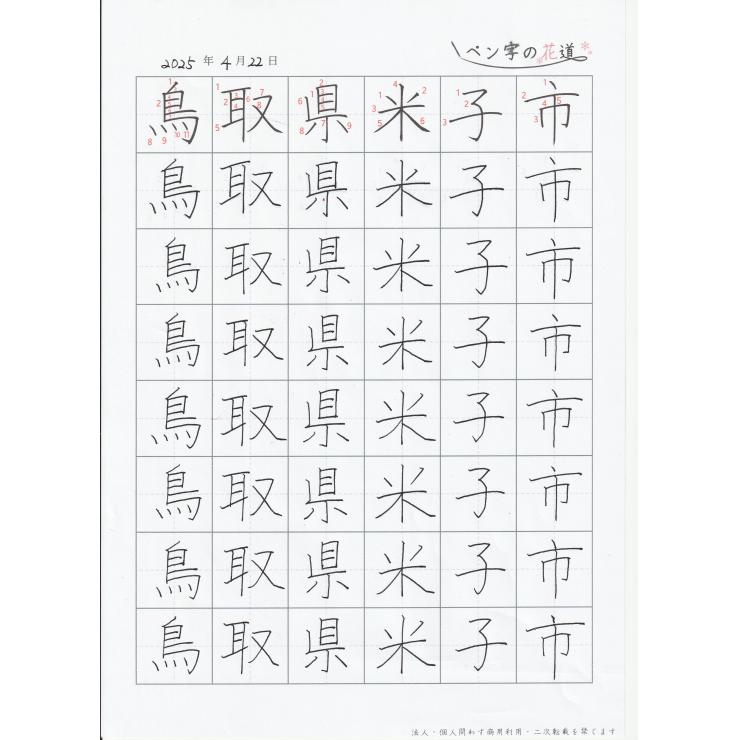 ペン字の花道
2025年4月22日
鳥取県米子市
鳥取県米子市
鳥取県米子市
鳥取県米子市
鳥取県米子市
鳥取県米子市
鳥取県米子市
鳥取県米子市
法人・個人問わず商用利用・二次転載を禁じます